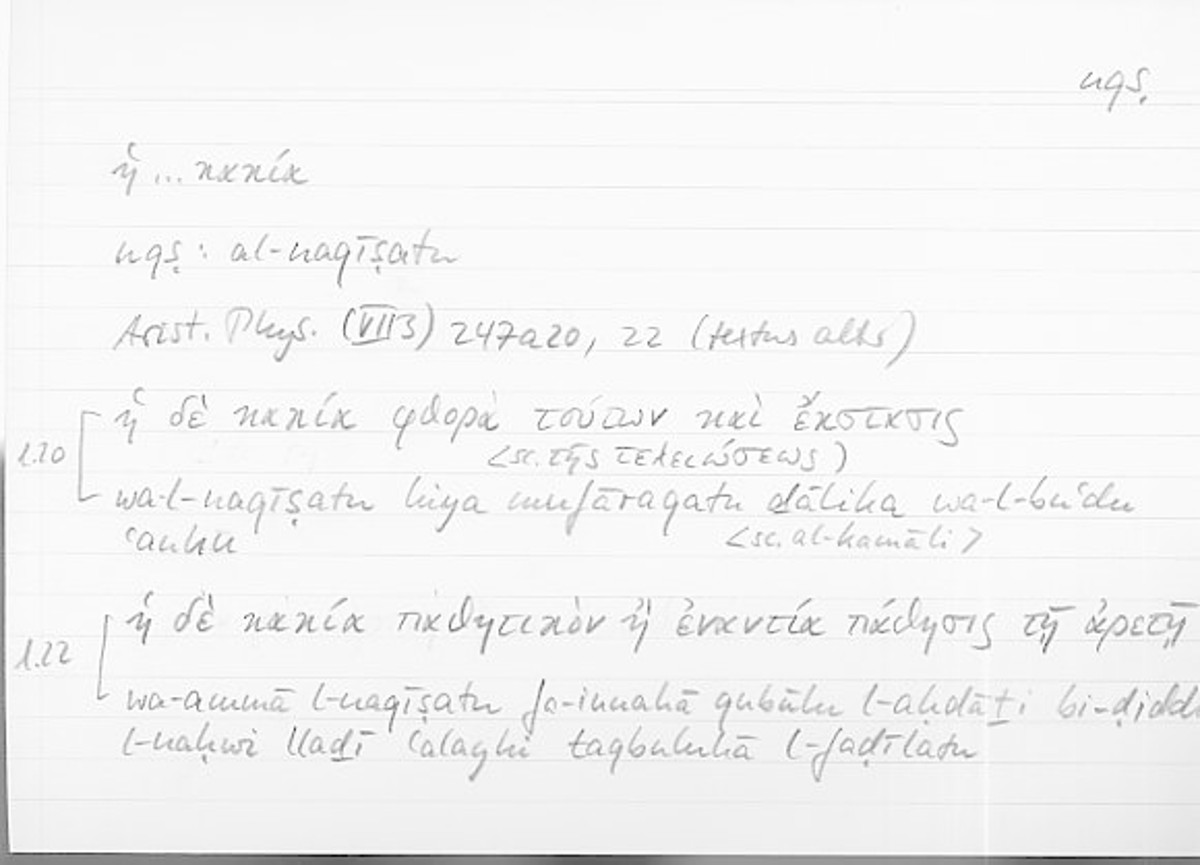 nqṣ
ἡ ... κακία
nqṣ : al-naqīṣatu
Arist. Phys. (VII 3) 247a20, 22 (textus alter)
ἡ δὲ κακία φθορὰ τούτων καὶ ἔκστασις
l.20
<sc. τῆς τελειώσεως>
wa-l-naqīṣatu hiya mufāraqatu ḏālika wa-l-buʿdu
ʿanhu <sc. al-kamāli>
ἡ δὲ κακία παθητικὸν ἢ ἐναντία πάθησις τῇ ἀρετῇ
l.22
wa-ammā l-naqīṣatu fa-innahā qubūlu l-aḥdāṯi bi-ḍiddi
l-naḥwi llaḏī ʿalayhi taqbuluhā l-faḍīlatu